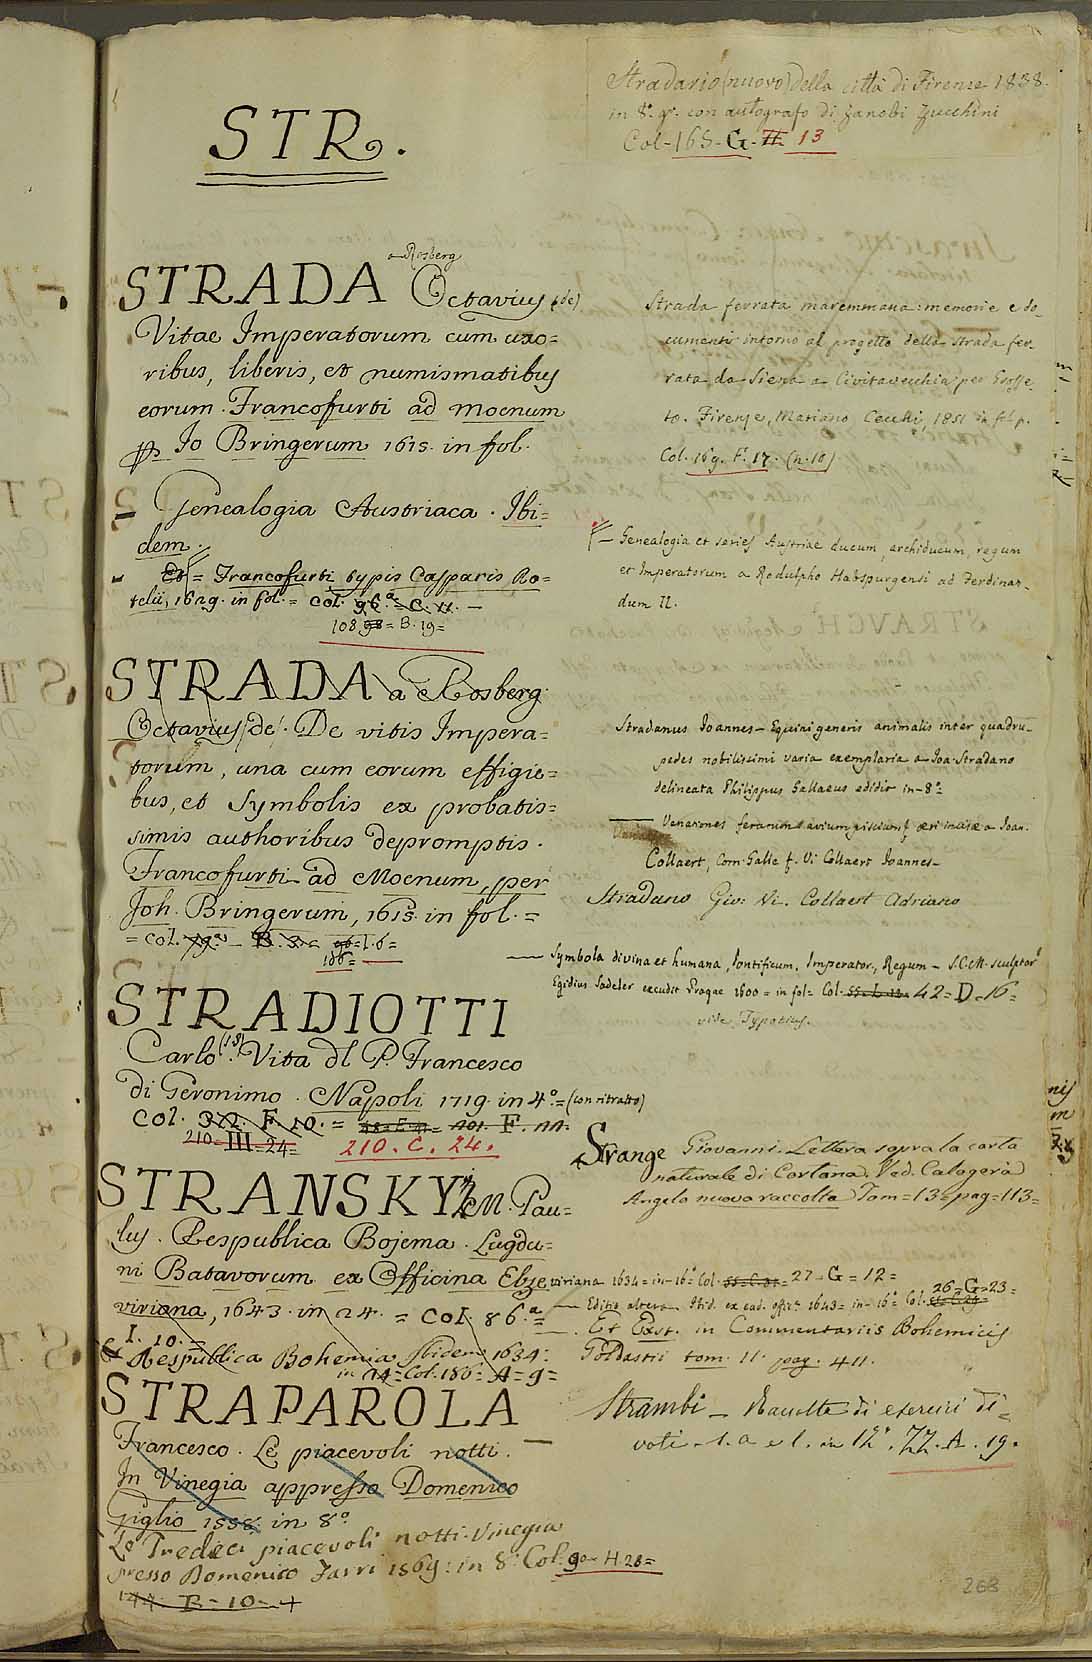 STR.
STRADA Octavius (de)
a Rosberg
Vitae Imperatorum cum uxo=
ribus, liberis, et numismatibus
eorum. Francofurti ad Moenum
Io Bringerum 1615. in fol.
Genealogia Austriaca. Ibi=
dem.
Et = Francofurti typis Casparis Ro=
telii, 1629. in fol. = Col. 96.a = C. 11. —
108 98 = B. 19 =
STRADA a Rosberg
Octavius (de). De vitis Impera=
torum, una cum eorum effigie=
bus, et Symbolis ex probatis=
simis authoribus depromptis.
Francofurti ad Moenum, per
Joh. Bringerum, 1615. in fol. =
= Col. B. 3. = 96 = I. 6 =
106 =
STRADIOTTI
Carlo. Vita dl P. Francesco
di Geronimo. Napoli 1719. in 4.o = (con ritratto)
Col. 322. F. 10. = 101. F. 11.
210 = III = 24 = 210. C. 24.
STRANSKY M. Pau=
lus. Respublica Bojema. Lugdu=
ni Batavorum ex Officina Elze
viriana, 1643. in 24. = Col. 86.a =
I. 10. =
Respublica Bohemia Ibidem 1634.
in 24 = Col. 186 = A = 9 =
STRAPAROLA
Francesco. Le piacevoli notti.
In Vinegia appresso Domenico
Giglio 1558. in 8o.
Le Tredeci piacevoli notti. Vinegia
presso Domenico Farri 1569. in 8. Col. 90 = H. 28 =
144. B = 10 = 4
Stradario (nuovo) della città di Firenze 1838.
in 8.o gr. con autografo di Zanobi Zucchini
Col - 165 - G - H 13
Strada ferrata maremmana: memorie e do=
cumenti intorno al progetto della Strada fer=
rata da Siena a Civitavecchia per Grosse=
to. Firenze, Mariano Cecchi, 1851 in f.l p.
Col. 169. F. 17. (n. 10)
— Genealogia et series Austriae ducum, archiducum, regum
et Imperatorum a Rodulpho Habspurgensi ad Ferdinan=
dum II.
Stradanus Ioannes — Equini generis animalis inter quadru=
pedes nobilissimi varia exemplaria a Ioa. Stradano
delineata Philippus Gallaeus edidit in - 8.o =
Venationes ferarum avium piscium aeri incisae a Ioan.
Collaert, Corn. Galle f. Vi Collaert Ioannes —
Stradano Gio: Vi. Collaert Adriano
— Symbola divina et humana, Pontificum, Imperator., Regum — S.C.M. sculptor
Egidius Sadeler excudit Pragae 1600 = in fol = Col. 55 = L. 12 = 42 = D = 16 =
vide Typotius.
Strange Giovanni. Lettera sopra la carta
naturale di Cortona. Ved. Calogerà
Angelo nuova raccolta Tom = 13 = pag = 113 =
viriana 1634 = in - 16.o Col. 27 = G = 12 =
— Editio altera. Ibid. ex ead. offic.a 1643 = in - 16.o Col. 26 = G = 23 =
— Et Exst. in Commentariis Bohemicis
Goldastii tom. II. pag. 411.
Strambi — Raccolta di esercizi di=
voti - s. a e l. in 12.o. ZZ. A. 19.
263